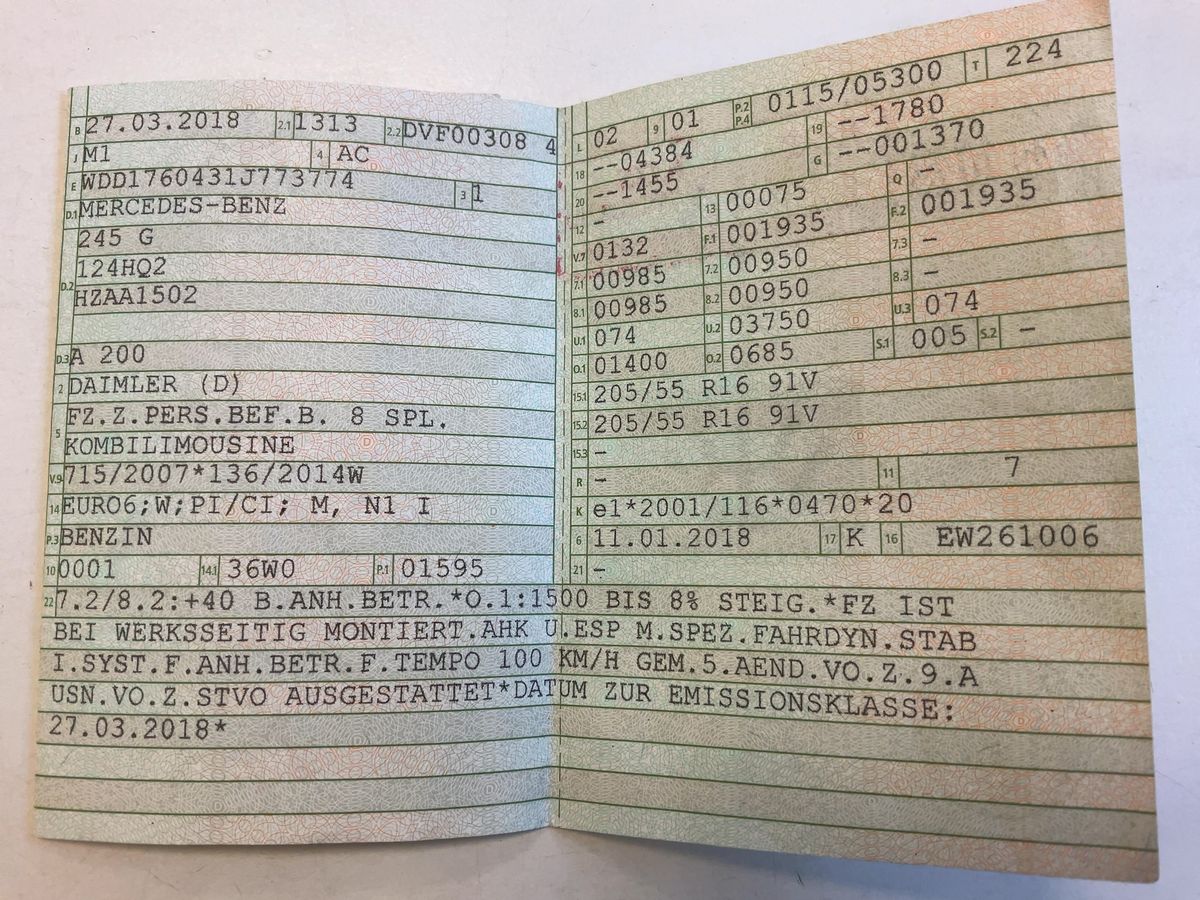 B 27.03.2018 2.1 1313 2.2 DVF00308 4
J M1 4 AC
E WDD1760431J773774 3 1
D.1 MERCEDES-BENZ
245 G
D.2 124HQ2
HZAA1502
D.3 A 200
2 DAIMLER (D)
5 FZ.Z.PERS.BEF.B. 8 SPL.
KOMBILIMOUSINE
V.9 715/2007*136/2014W
14 EURO6;W;PI/CI; M, N1 I
P.3 BENZIN
10 0001 14.1 36W0 P.1 01595
L 02 9 01 P.2 P.4 0115/05300 T 224
18 --04384 19 --1780
20 --1455 G --001370
12 - 13 00075 Q -
V.7 0132 F.1 001935 F.2 001935
7.1 00985 7.2 00950 7.3 -
8.1 00985 8.2 00950 8.3 -
U.1 074 U.2 03750 U.3 074
O.1 01400 O.2 0685 S.1 005 S.2 -
15.1 205/55 R16 91V
15.2 205/55 R16 91V
15.3 -
R - 11 7
K e1*2001/116*0470*20
6 11.01.2018 17 K 16 EW261006
21 -
22 7.2/8.2:+40 B.ANH.BETR.*O.1:1500 BIS 8% STEIG.*FZ IST
BEI WERKSSEITIG MONTIERT.AHK U.ESP M.SPEZ.FAHRDYN.STAB
I.SYST.F.ANH.BETR.F.TEMPO 100 KM/H GEM.5.AEND.VO.Z.9.A
USN.VO.Z.STVO AUSGESTATTET*DATUM ZUR EMISSIONSKLASSE:
27.03.2018*